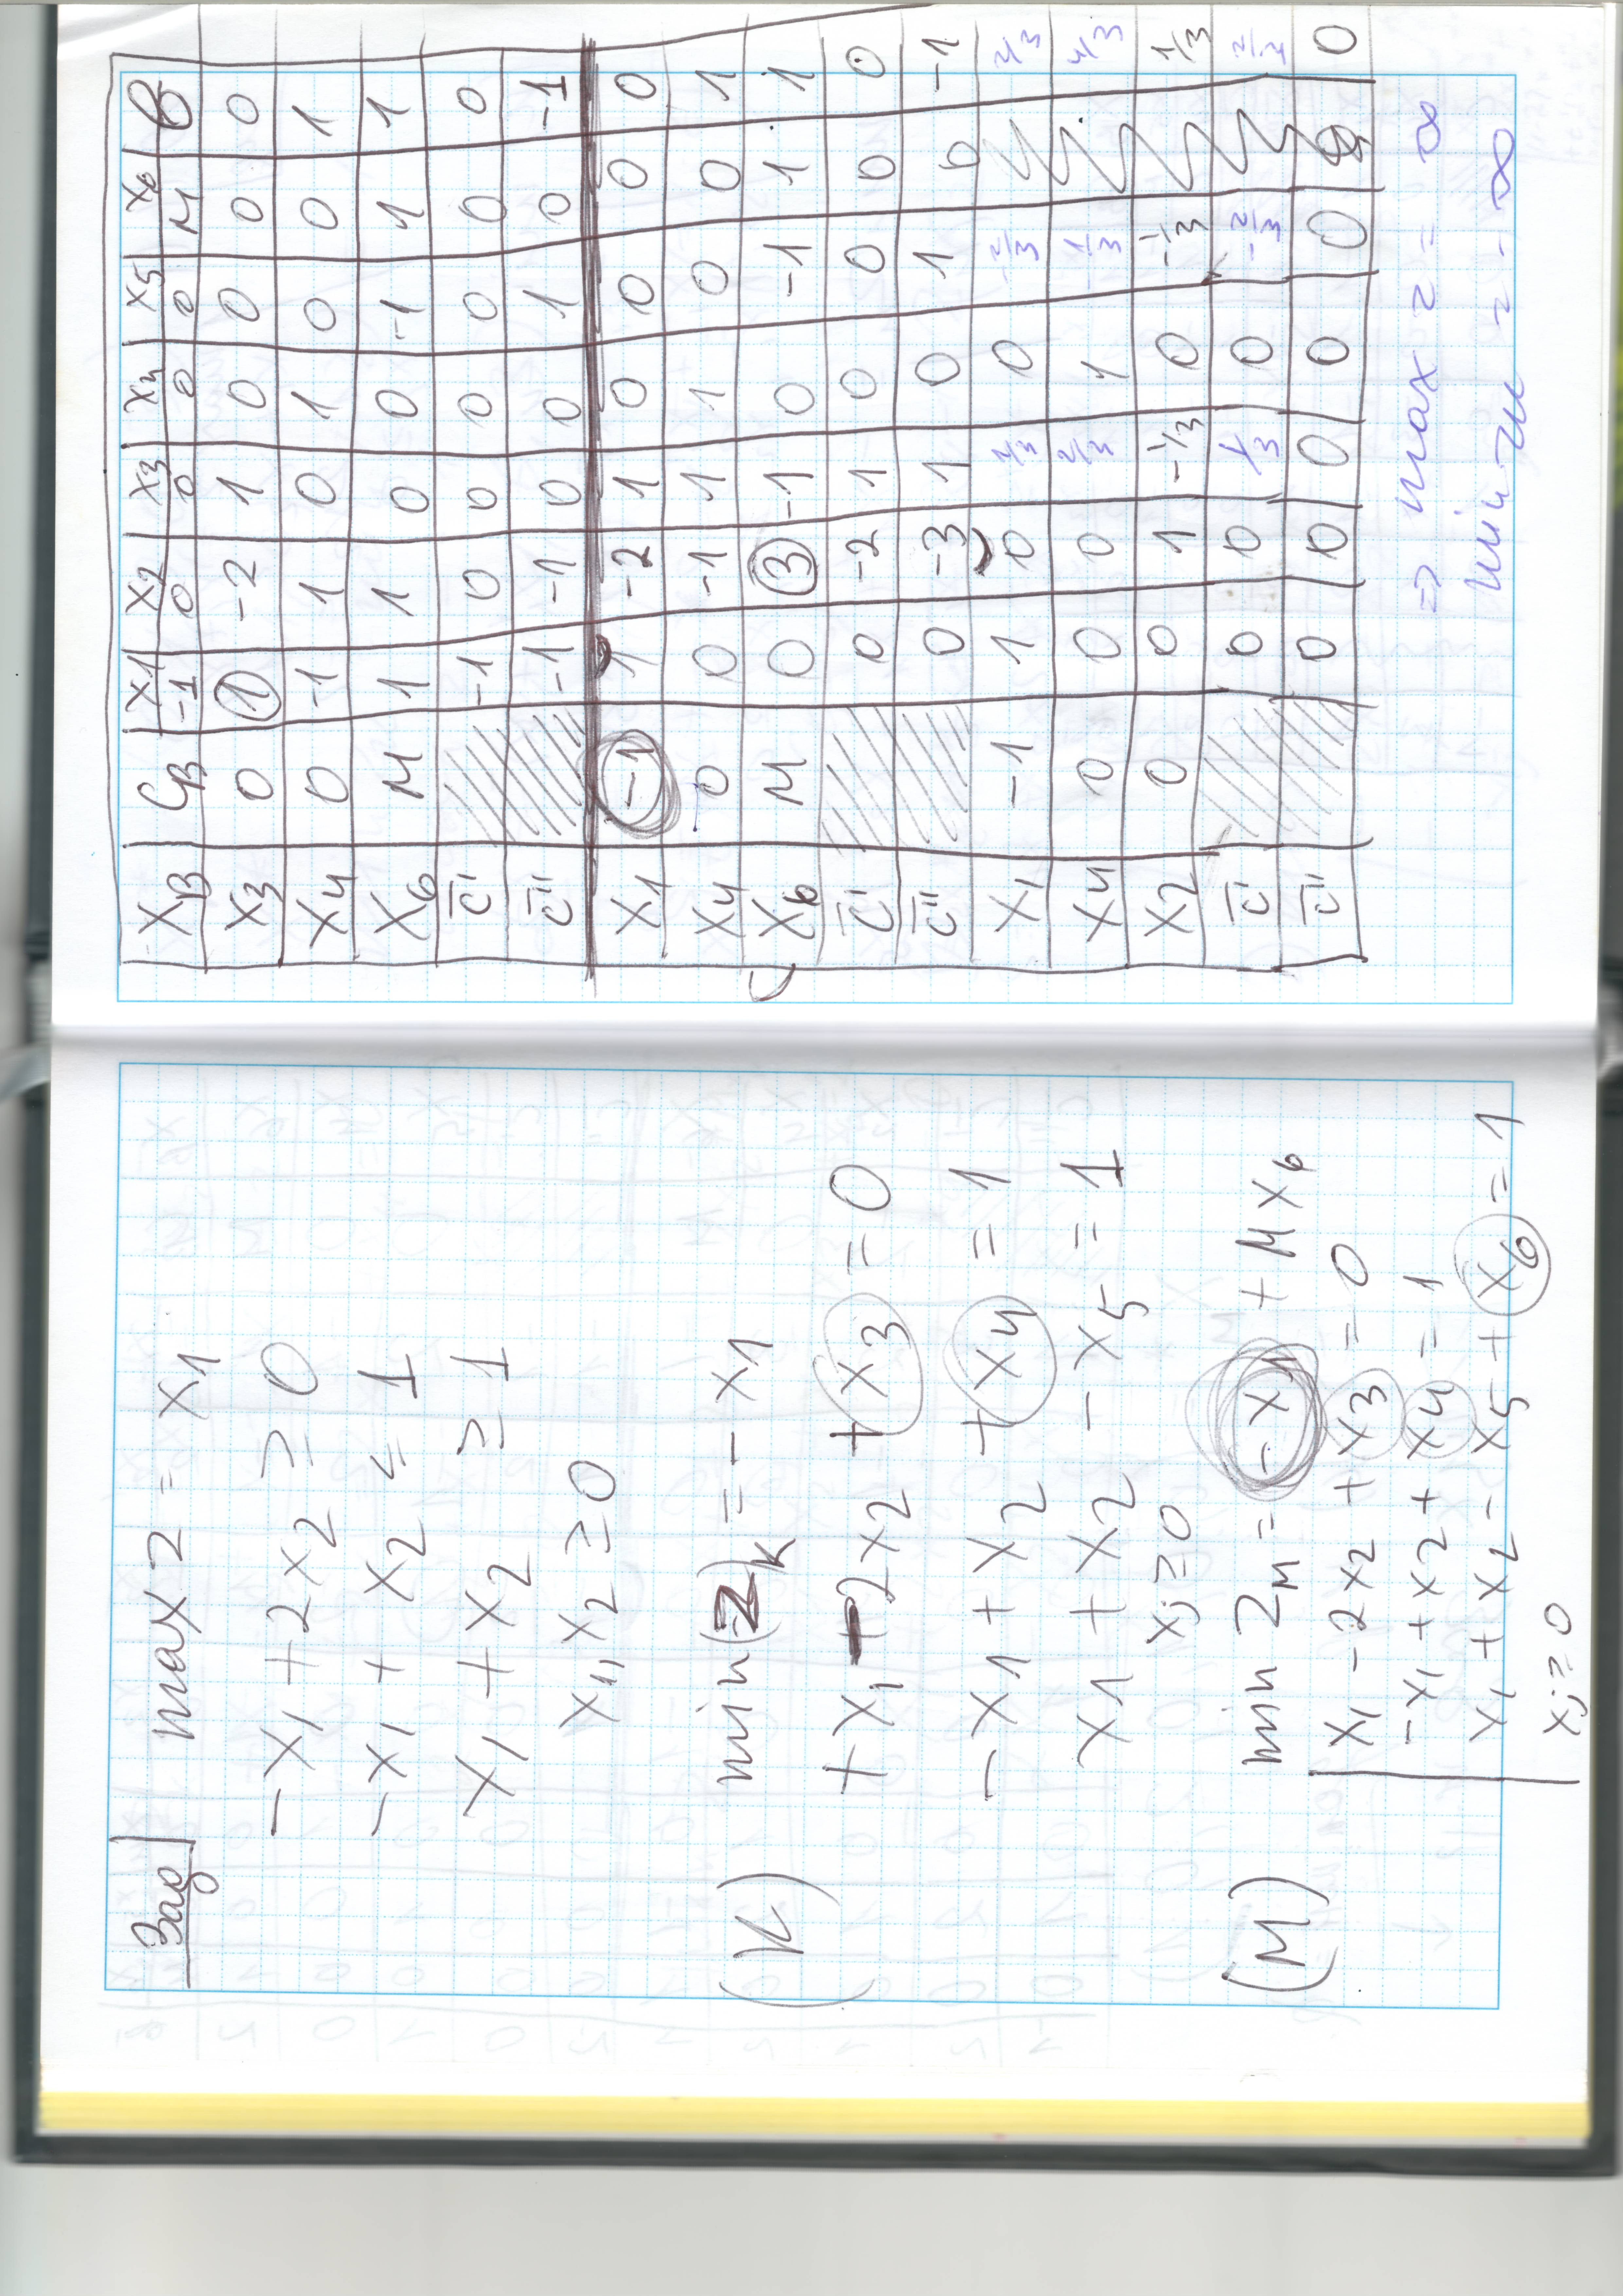 Зад max z = x1
-x1 + 2x2 ≥ 0
-x1 + x2 ≤ 1
x1 + x2 ≥ 1
x1, x2 ≥ 0
(K) min(z)K = -x1
+x1 - 2x2 + x3 = 0
-x1 + x2 + x4 = 1
x1 + x2 - x5 = 1
xj ≥ 0
(M) min zM = -x1 + Mx6
x1 - 2x2 + x3 = 0
-x1 + x2 + x4 = 1
x1 + x2 - x5 + x6 = 1
xj ≥ 0
XB CB x1 x2 x3 x4 x5 x6 b
-1 0 0 0 0 M
X3 0 1 -2 1 0 0 0 0
X4 0 -1 1 0 1 0 0 1
X6 M 1 1 0 0 -1 1 1
c̄' -1 0 0 0 0 0 0
c̄'' -1 -1 0 0 1 0 -1
X1 -1 1 -2 1 0 0 0 0
X4 0 0 -1 1 1 0 0 1
X6 M 0 3 -1 0 -1 1 1
c̄' 0 -2 1 0 0 0 0
c̄'' 0 -3 1 0 1 0 -1
X1 -1 1 0 0 -2/3 2/3
X4 0 0 0 2/3 1 -1/3 4/3
X2 0 0 1 -1/3 0 -1/3 1/3
c̄' 0 0 1/3 0 -2/3
c̄'' 0 0 0 0 0 0
=> max z = ∞
min zM = -∞